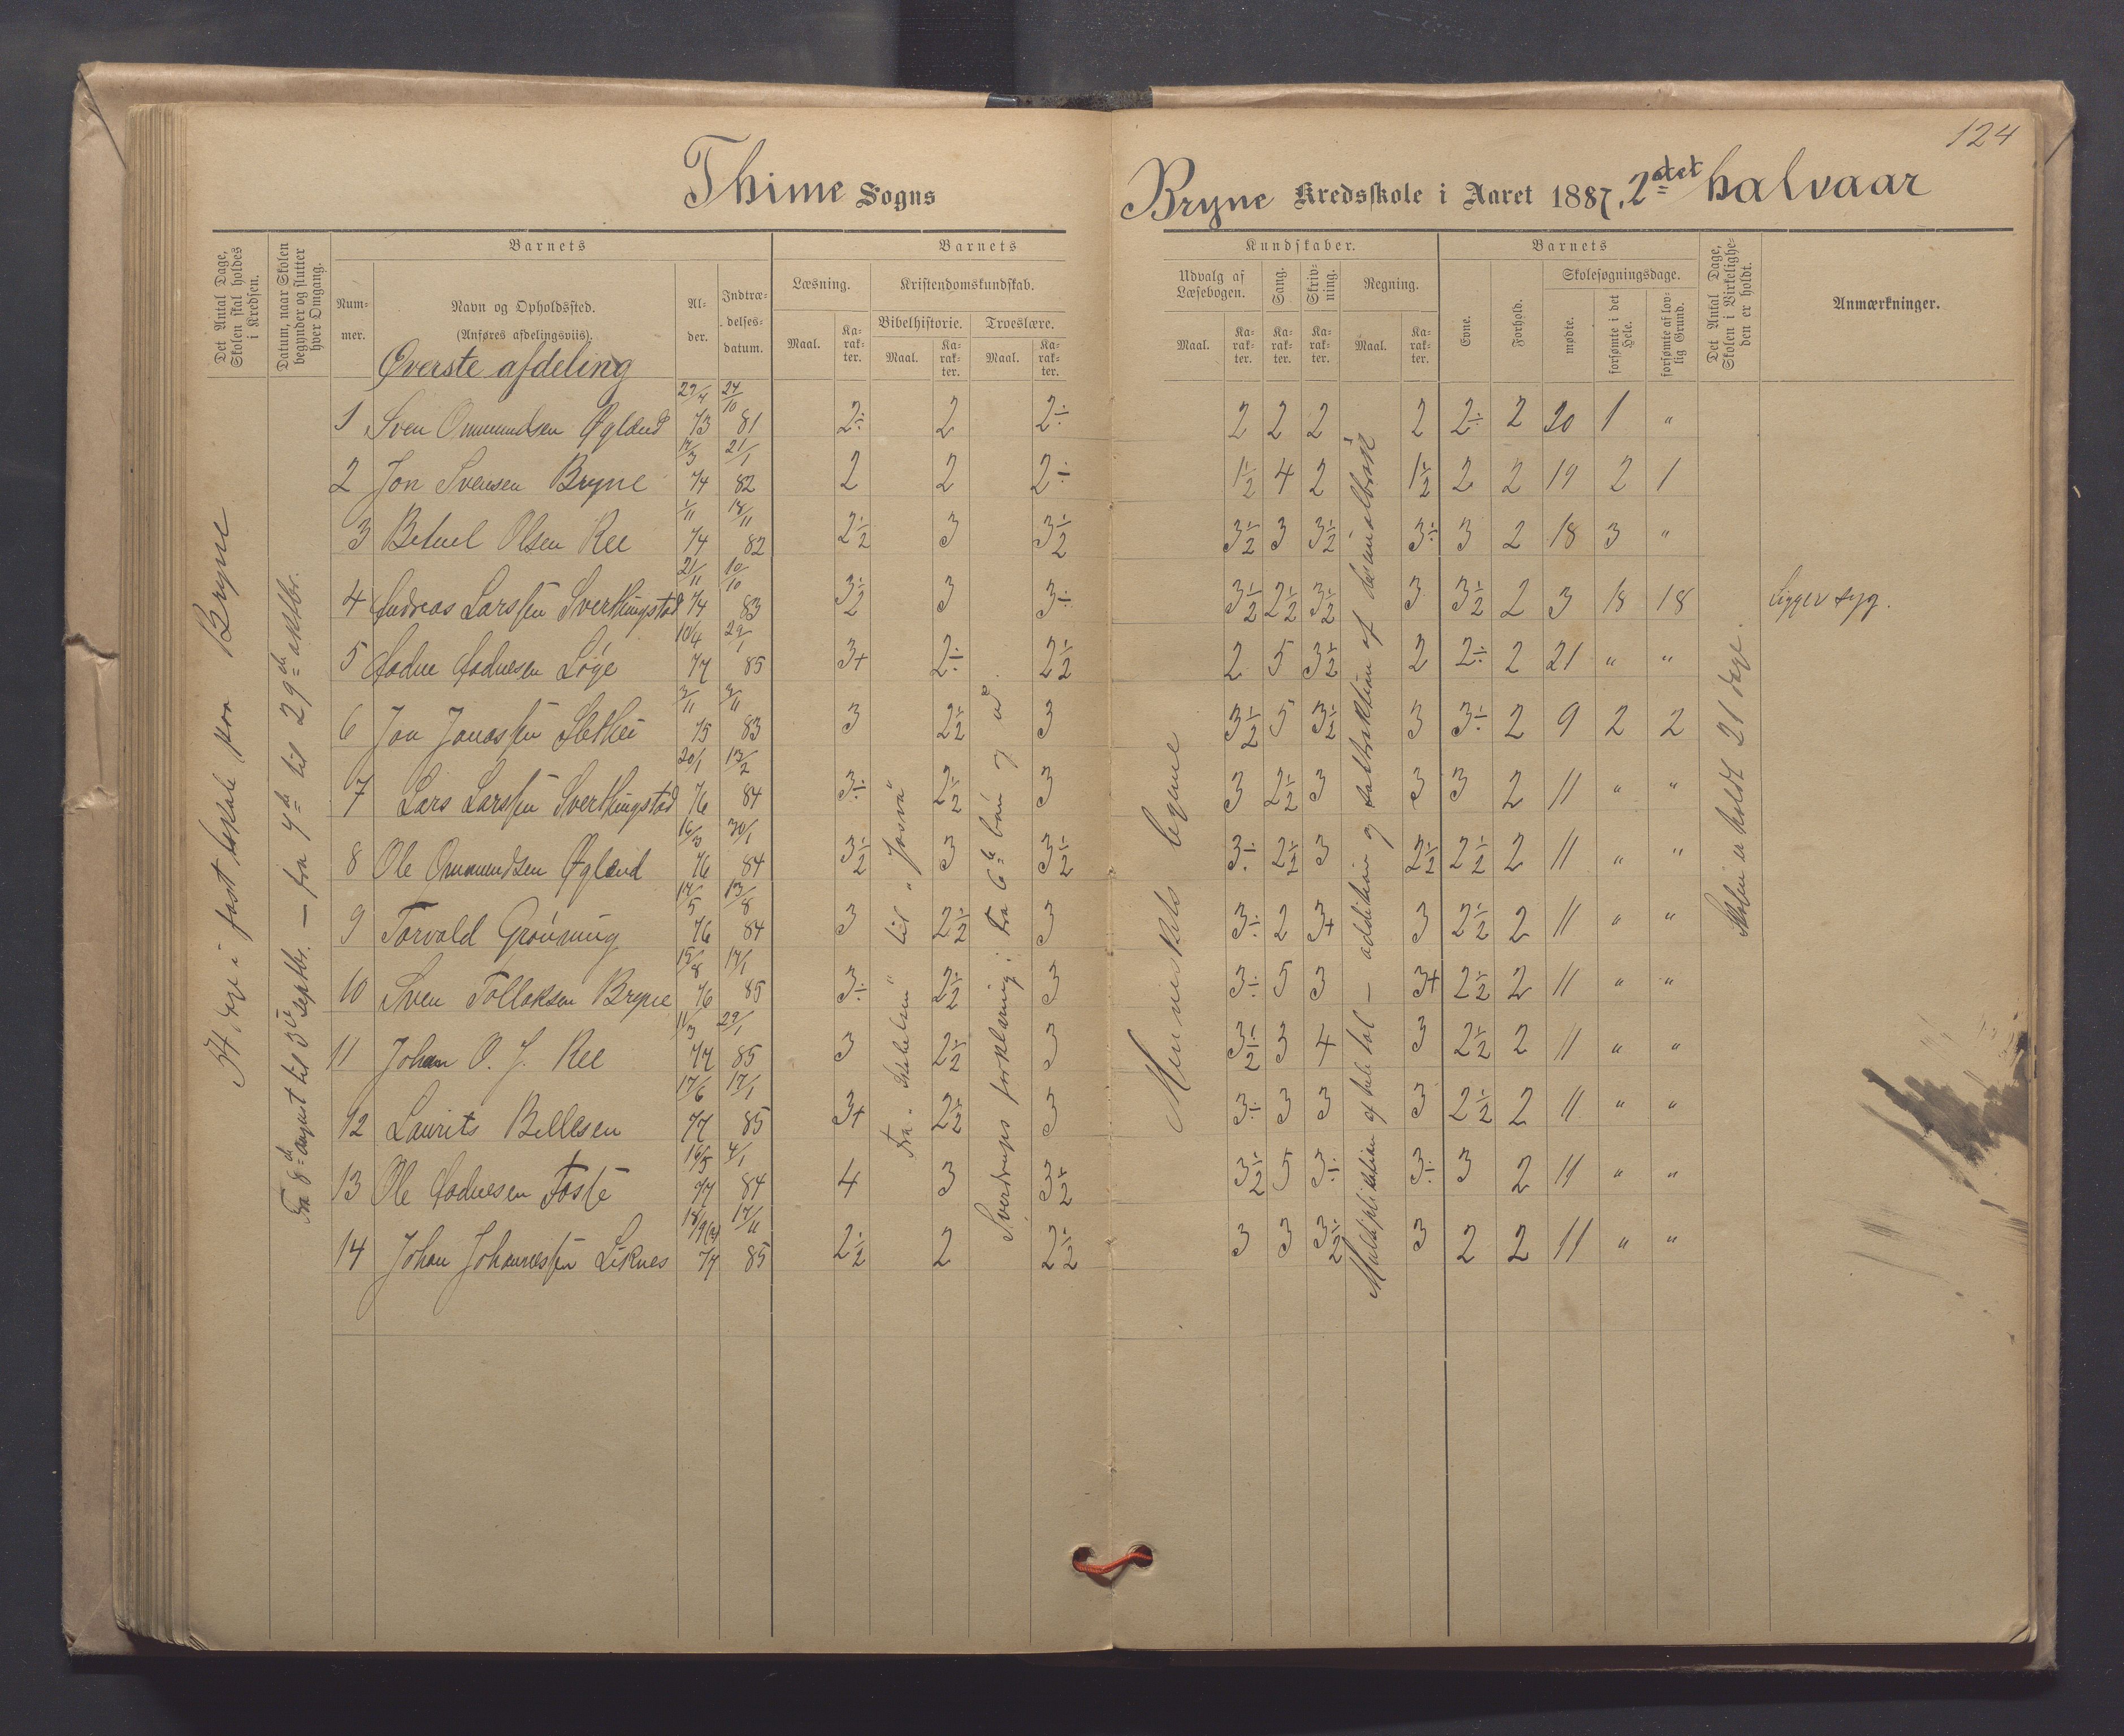 124
Thime Sogns
Bryne Kredsskole i Aaret 1887, 2det halvaar
Det Antal Dage, Skolen skal holdes i Kredsen.
Datum, naar Skolen begynder og slutter hver Omgang.
Barnets
Nummer.
Navn og Opholdssted.
(Anføres afdelingsviis).
Alder.
Indtrædelsesdatum.
Barnets
Læsning.
Kristendomskundskab.
Bibelhistorie.
Troeslære.
Maal.
Karakter.
Maal.
Karakter.
Maal.
Karakter.
Kundskaber.
Udvalg af Læsebogen.
Sang.
Skrivning.
Regning.
Maal.
Karakter.
Karakter.
Karakter.
Maal.
Karakter.
Barnets
Evne.
Forhold.
Skolesøgningsdage.
mødte.
forsømte i det Hele.
forsømte af lovlig Grund.
Det Antal Dage, Skolen i Virkeligheden er holdt.
Anmærkninger.
Øverste afdeling
1 Sven Ommundsen Øgland 29/4 73 24/10 81 2÷ 2 2÷ 2 2 2 2 2÷ 2 20 1 "
2 Jon Svensen Bryne 12/3 74 21/1 82 2 2 2÷ 1½ 4 2 1½ 2 2 19 2 1
3 Betuel Olsen Ree 1/11 74 18/11 82 2½ 3 3½ 3½ 3 3½ 3÷ 3 2 18 3 "
4 Andreas Larssen Sverthingstad 21/11 74 10/10 83 3½ 3 3÷ 3½ 2½ 3½ 3 3½ 2 3 18 18 Ligger syg.
5 Aadne Aadnesen Løge 10/4 77 29/1 85 3+ 2÷ 2½ 2 5 3½ 2 2÷ 2 21 " "
6 Jon Jonassen Slethei 2/11 75 2/11 83 3 2½ 3 3½ 5 3½ 3 3÷ 2 9 2 2
7 Lars Larssen Sverthingstad 20/1 76 13/2 84 3÷ 2½ 3 3 2½ 3 3 3 2 11 " "
8 Ole Ommundsen Øgland 16/3 76 30/1 84 3½ 3 3½ 3÷ 2½ 3 2½ 2½ 2 11 " "
9 Torvald Grønning 17/5 76 13/8 84 3 2½ 3 3÷ 2 3+ 3 2½ 2 11 " "
10 Sven Tollaksen Bryne 15/8 76 17/1 85 3÷ 2½ 3 3÷ 5 3 3+ 2½ 2 11 " "
11 Johan O. J. Ree 11/3 77 29/1 85 3 2½ 3 3½ 3 4 3 2½ 2 11 " "
12 Laurits Bellesen 17/6 77 17/1 85 3+ 2½ 3 3÷ 3 3 3 2½ 2 11 " "
13 Ole Aadnesen Fosse 16/5 77 4/1 84 4 3 3½ 3½ 5 3÷ 3÷ 3 2 11 " "
14 Johan Johannessen Liknes 18/9 77 17/11 85 2½ 2 2½ 3 3 3½ 3 2 2 11 " "
34 dage i fast lokale paa Bryne
Fra 8de august til 3de septbr. — fra 4de til 29de oktbr.
til "Josva"
Sverdrups forklaring: Fra 6te bøn og ud.
Menneskets legeme
Multiplikation af hele tal — addition og subtraktion af desimalbrøk
Skolen er holdt 21 dage.